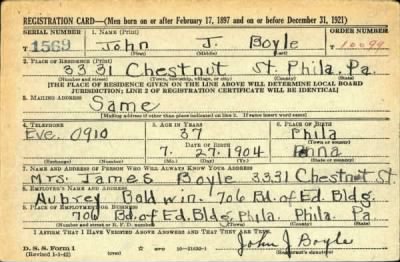 REGISTRATION CARD—(Men born on or after February 17, 1897 and on or before December 31, 1921)
SERIAL NUMBER 1. NAME (Print) ORDER NUMBER
1569 John J. Boyle 10099
(First) (Middle) (Last)
2. PLACE OF RESIDENCE (Print)
3331 Chestnut St. Phila. Pa.
(Number and street) (Town, township, village, or city) (County) (State)
[THE PLACE OF RESIDENCE GIVEN ON THE LINE ABOVE WILL DETERMINE LOCAL BOARD
JURISDICTION; LINE 2 OF REGISTRATION CERTIFICATE WILL BE IDENTICAL]
3. MAILING ADDRESS
Same
[Mailing address if other than place indicated on line 2. If same insert word same]
4. TELEPHONE 5. AGE IN YEARS 6. PLACE OF BIRTH
Eve. 0910 37 Phila
DATE OF BIRTH (Town or county)
7. 27. 1904 Penna
(Exchange) (Number) (Mo.) (Day) (Yr.) (State or country)
7. NAME AND ADDRESS OF PERSON WHO WILL ALWAYS KNOW YOUR ADDRESS
Mrs. James Boyle 3331 Chestnut St
8. EMPLOYER'S NAME AND ADDRESS
Aubrey Baldwin. 706 Bd. of Ed. Bldg.
9. PLACE OF EMPLOYMENT OR BUSINESS
706 Bd. of Ed. Bldg. Phila. Phila. Pa.
(Number and street or R. F. D. number) (Town) (County) (State)
I AFFIRM THAT I HAVE VERIFIED ABOVE ANSWERS AND THAT THEY ARE TRUE.
D. S. S. Form 1
(Revised 1-1-42) (over) 16—21630-1
John J Boyle